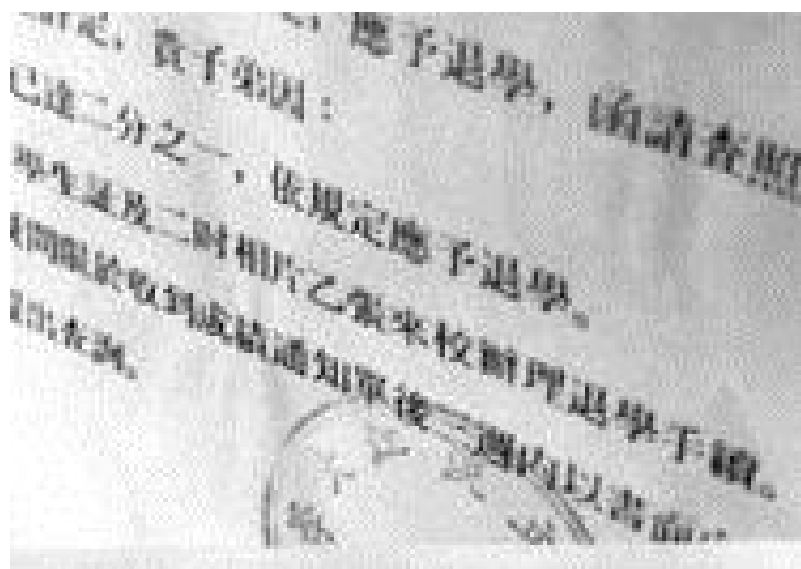 應予退學，函請查照
貴子弟因：
已達二分之一，依規定應予退學。
學生證及二吋相片乙張來校辦理退學手續。
問題於收到成績通知單後二週內以書面
查詢。